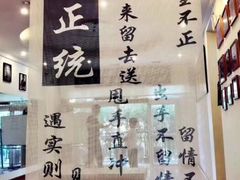 正统
来留去送
甩手直冲
不正
出手不留情
留情不
遇实则